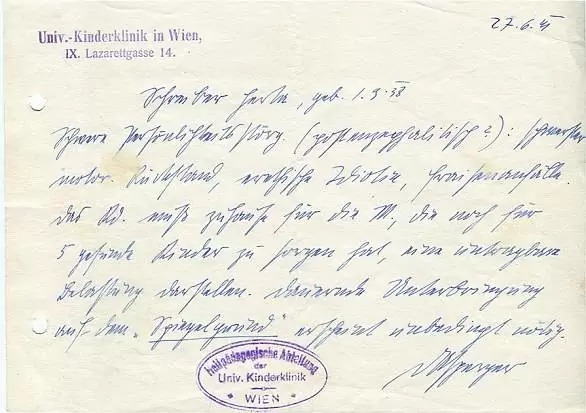 Univ.-Kinderklinik in Wien,
IX. Lazarettgasse 14.
27.6.41
Schreiber Herta, geb. 1.9.38
Schwere Persönlichkeitsstörg. (postenzephalitisch?): schwerster
motor. Rückstand, erethische Idiotie, Fraisenanfälle.
Das Kd. muß zuhause für die M., die noch für
5 gesunde Kinder zu sorgen hat, eine untragbare
Belastung darstellen. Dauernde Unterbringung
auf dem „Spiegelgrund" erscheint unbedingt nötig.
DAsperger
Heilpädagogische Abteilung
der
Univ. Kinderklinik
* WIEN *